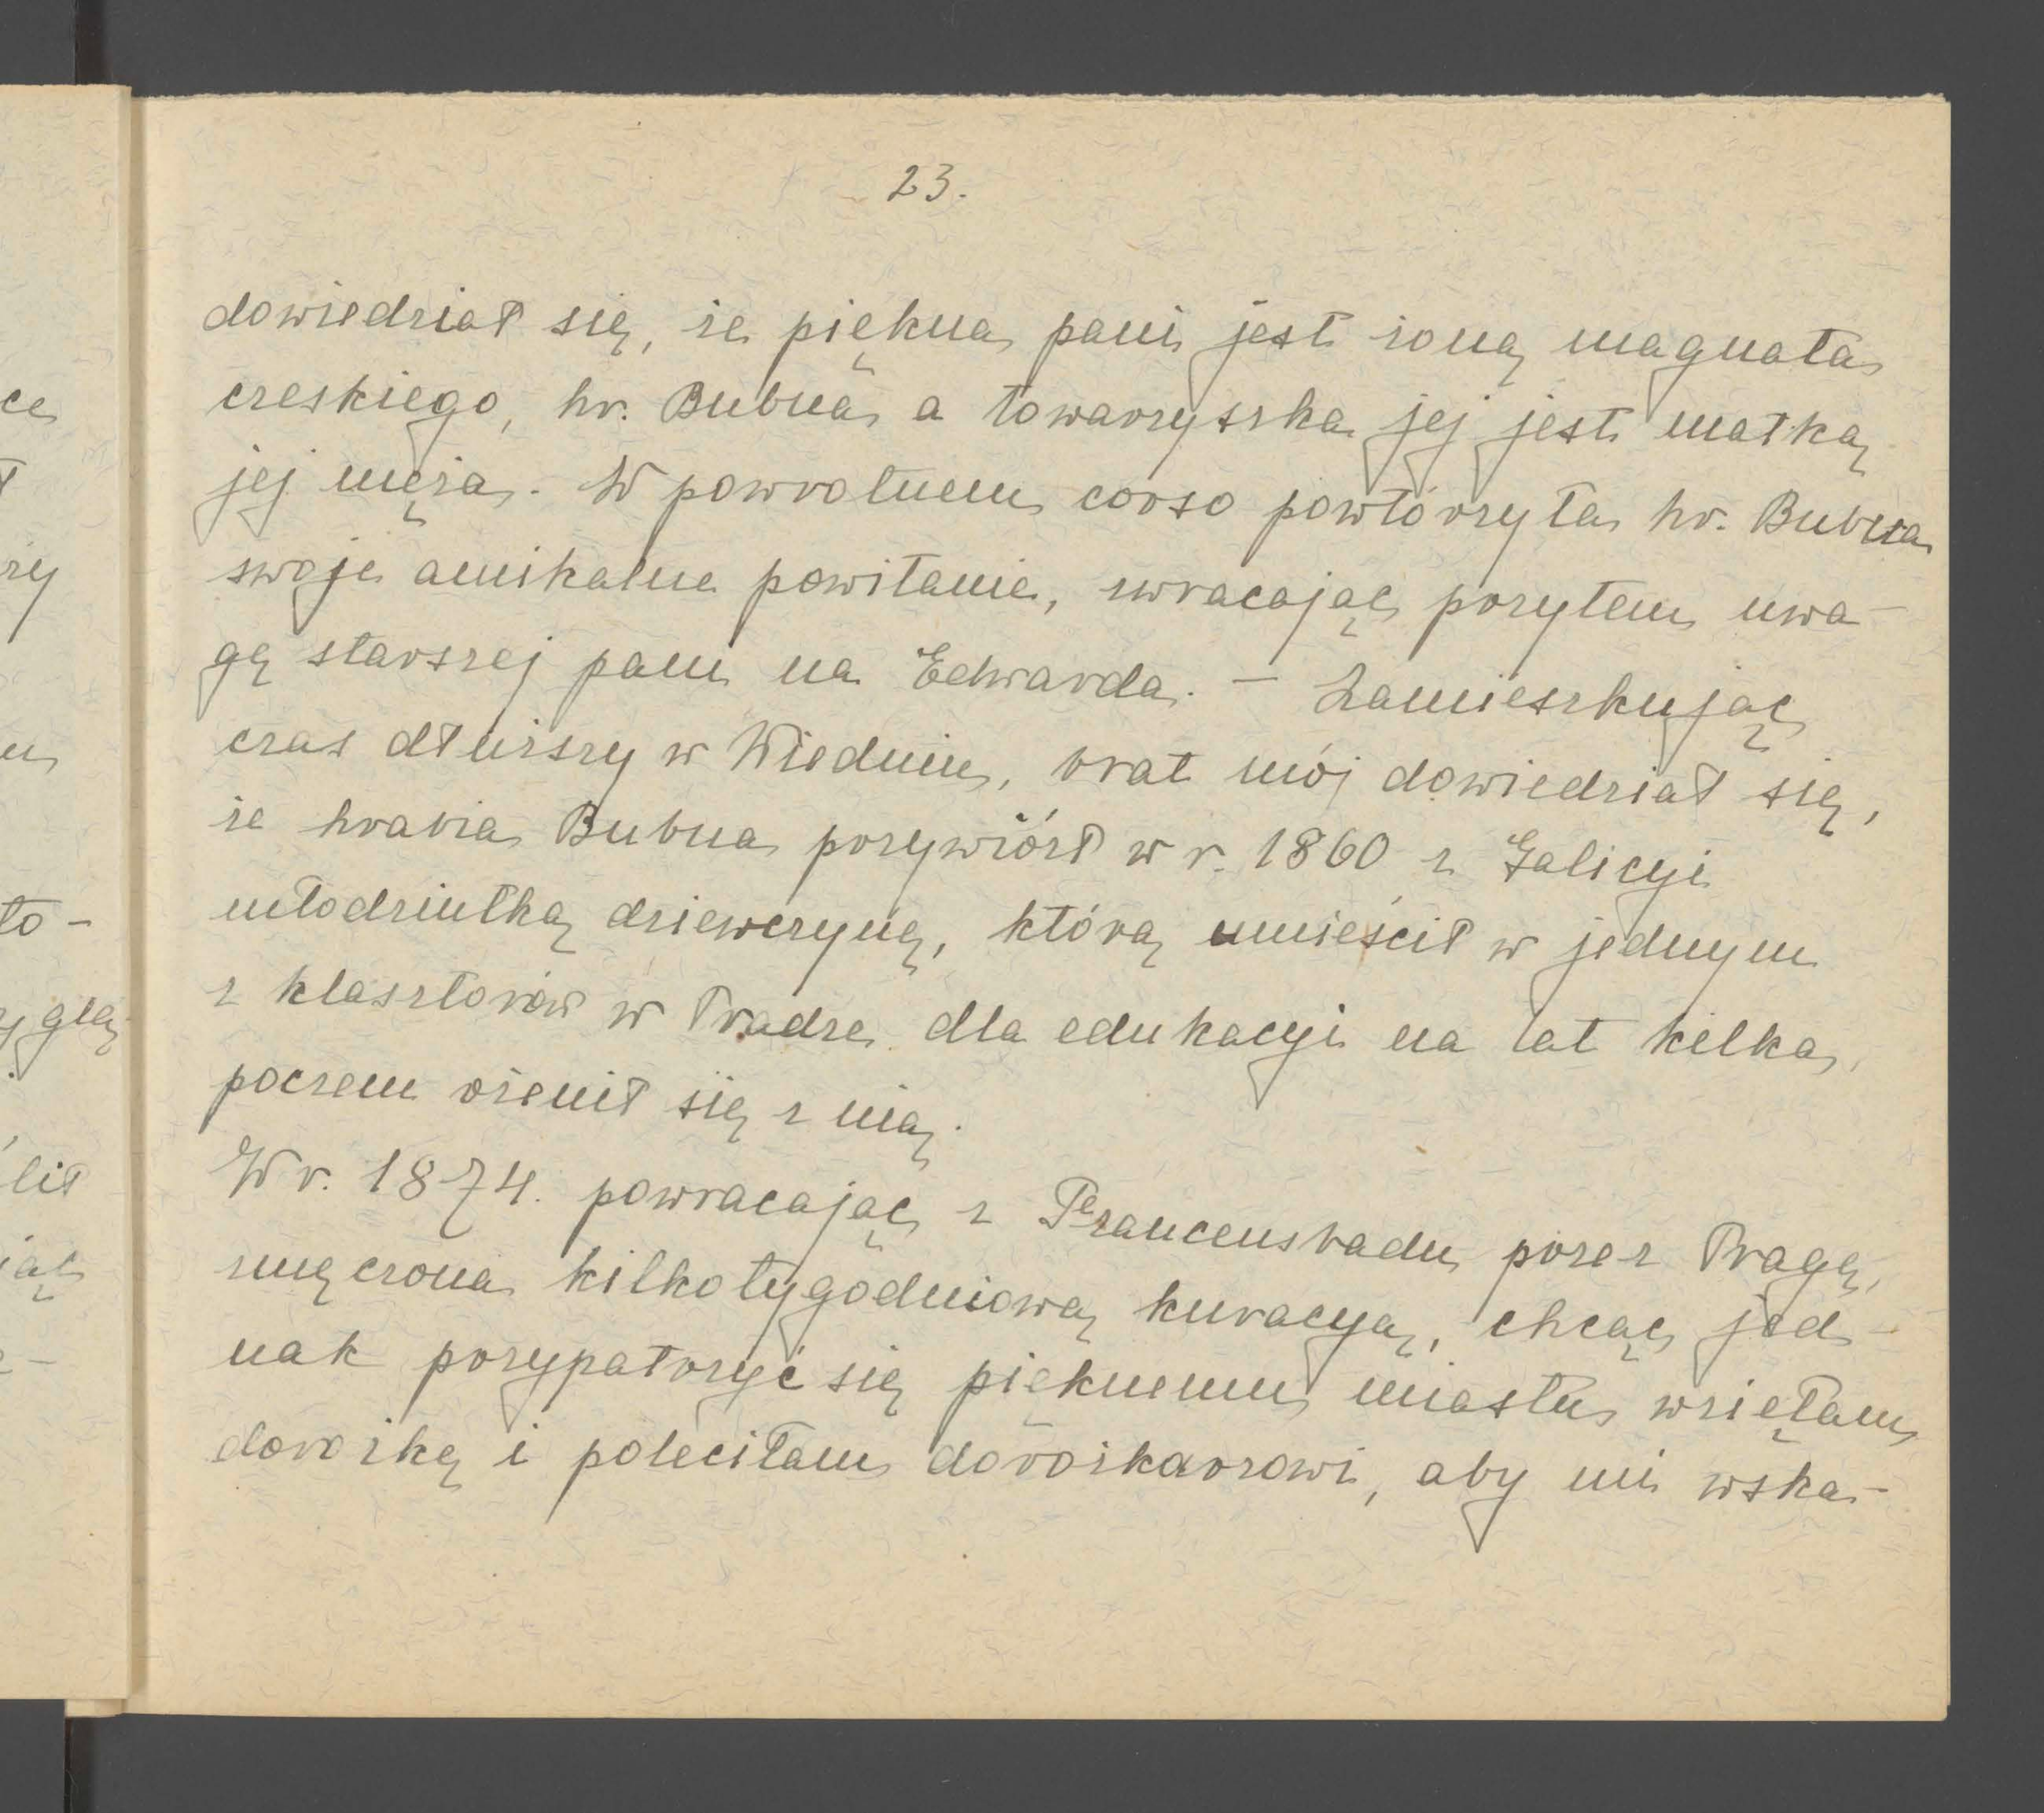 23.
dowiedział się, że piękna pani jest żoną magnata
czeskiego, hr. Bubna a towarzyszka jej jest matką
jej męża. W powrotnem corso powtórzyła hr. Bubna
swoje amikalne powitanie, zwracając przytem uwa-
gę starszej pani na Edwarda. - Zamieszkując
czas dłuższy w Wiedniu, brat mój dowiedział się,
że hrabia Bubna przywiózł w r. 1860 z Galicyi
młodziutką dziewczynę, którą umieścił w jednym
z klasztorów w Pradze dla edukacyi na lat kilka,
poczem ożenił się z nią.
W r. 1874. powracając z Francensbadu przez Pragę,
zmęczona kilkotygodniową kuracyą, chcąc jed-
nak przypatrzyć się pięknemu miastu wzięłam
dorożkę i poleciłam dorożkarzowi, aby mi wska-